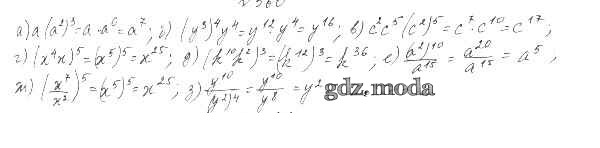 а) a(a²)³=a·a⁶=a⁷; б) (y³)⁴y⁴=y¹²·y⁴=y¹⁶; в) c²c⁵(c²)⁵=c⁷·c¹⁰=c¹⁷;
г) (x⁴x)⁵=(x⁵)⁵=x²⁵; д) (k¹⁰k²)³=(k¹²)³=k³⁶; е) (a²)¹⁰/a¹⁵=a²⁰/a¹⁵=a⁵,
ж) (x⁷/x²)⁵=(x⁵)⁵=x²⁵; з) y¹⁰/(y²)⁴=y¹⁰/y⁸=y² gdz.moda